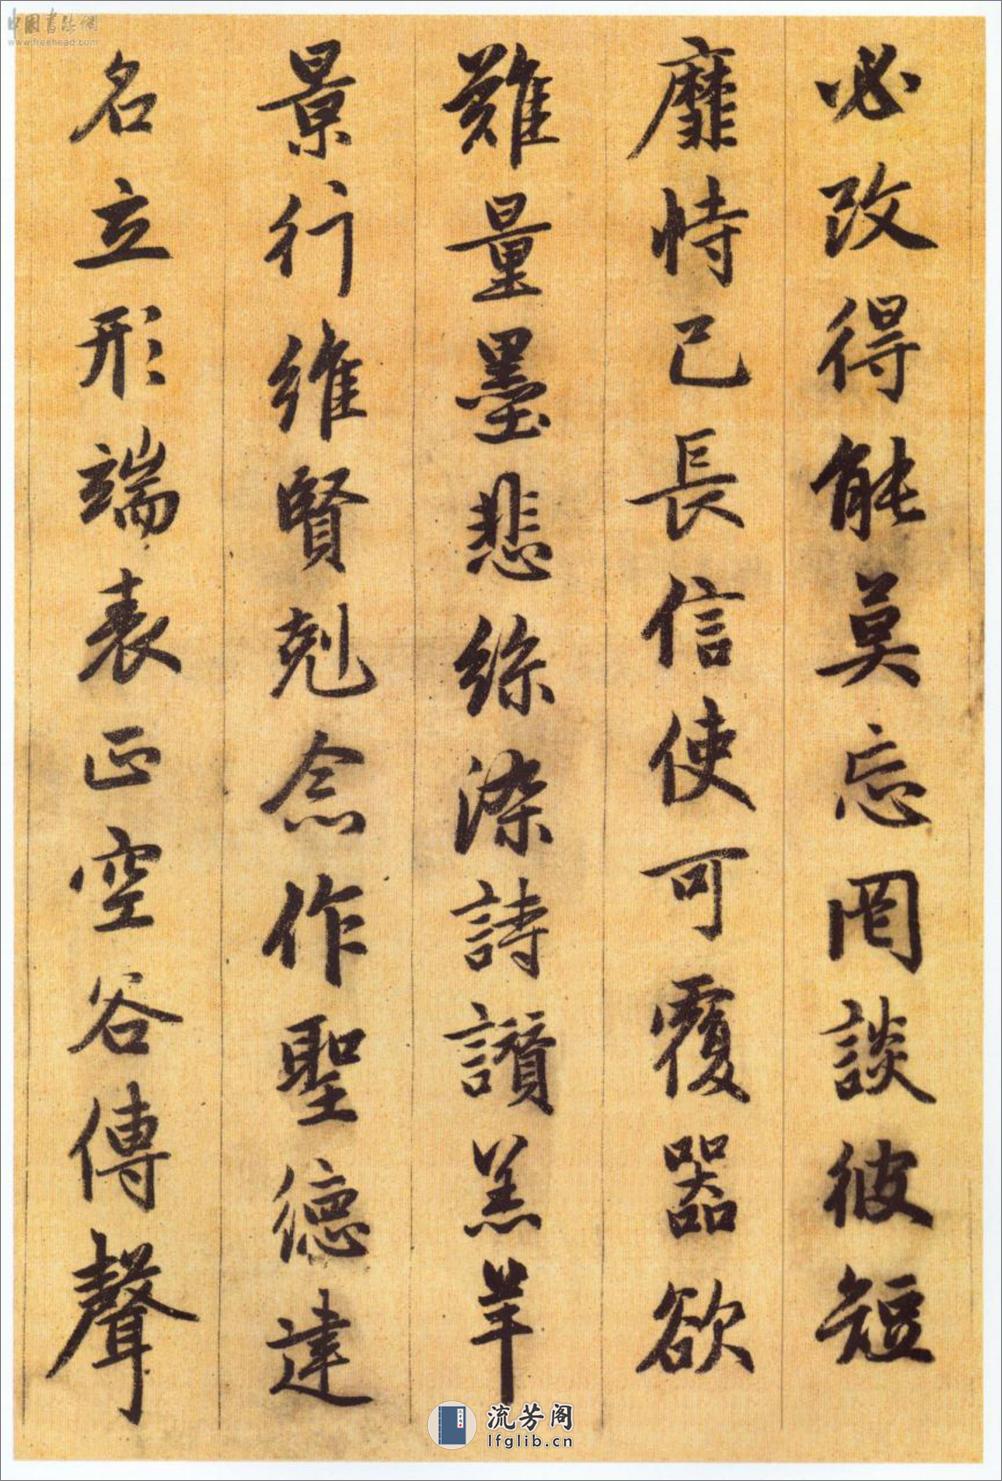 必改得能莫忘罔談彼短
靡恃己長信使可覆器欲
難量墨悲絲染詩讃羔羊
景行維賢剋念作聖德建
名立形端表正空谷傳聲
中国书法网
www.freehead.com
流芳阁
lfglib.cn